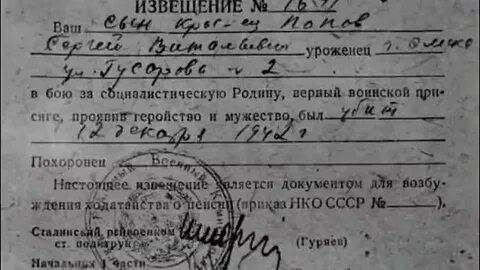 ИЗВЕЩЕНИЕ № 16/11
Ваш сын кр-ец Попов
Сергей Витальевич уроженец г. Омска
ул. Гусарова № 2
в бою за социалистическую Родину, верный воинской при-
сяге, проявив геройство и мужество, был убит
12 декабря 1942 г
Похоронен
Настоящее извещение является документом для возбу-
ждения ходатайства о пенсии (приказ НКО СССР № ).
Сталинский райвоенком
ст. политрук (Гуряев)
Начальник 1 части
Военный